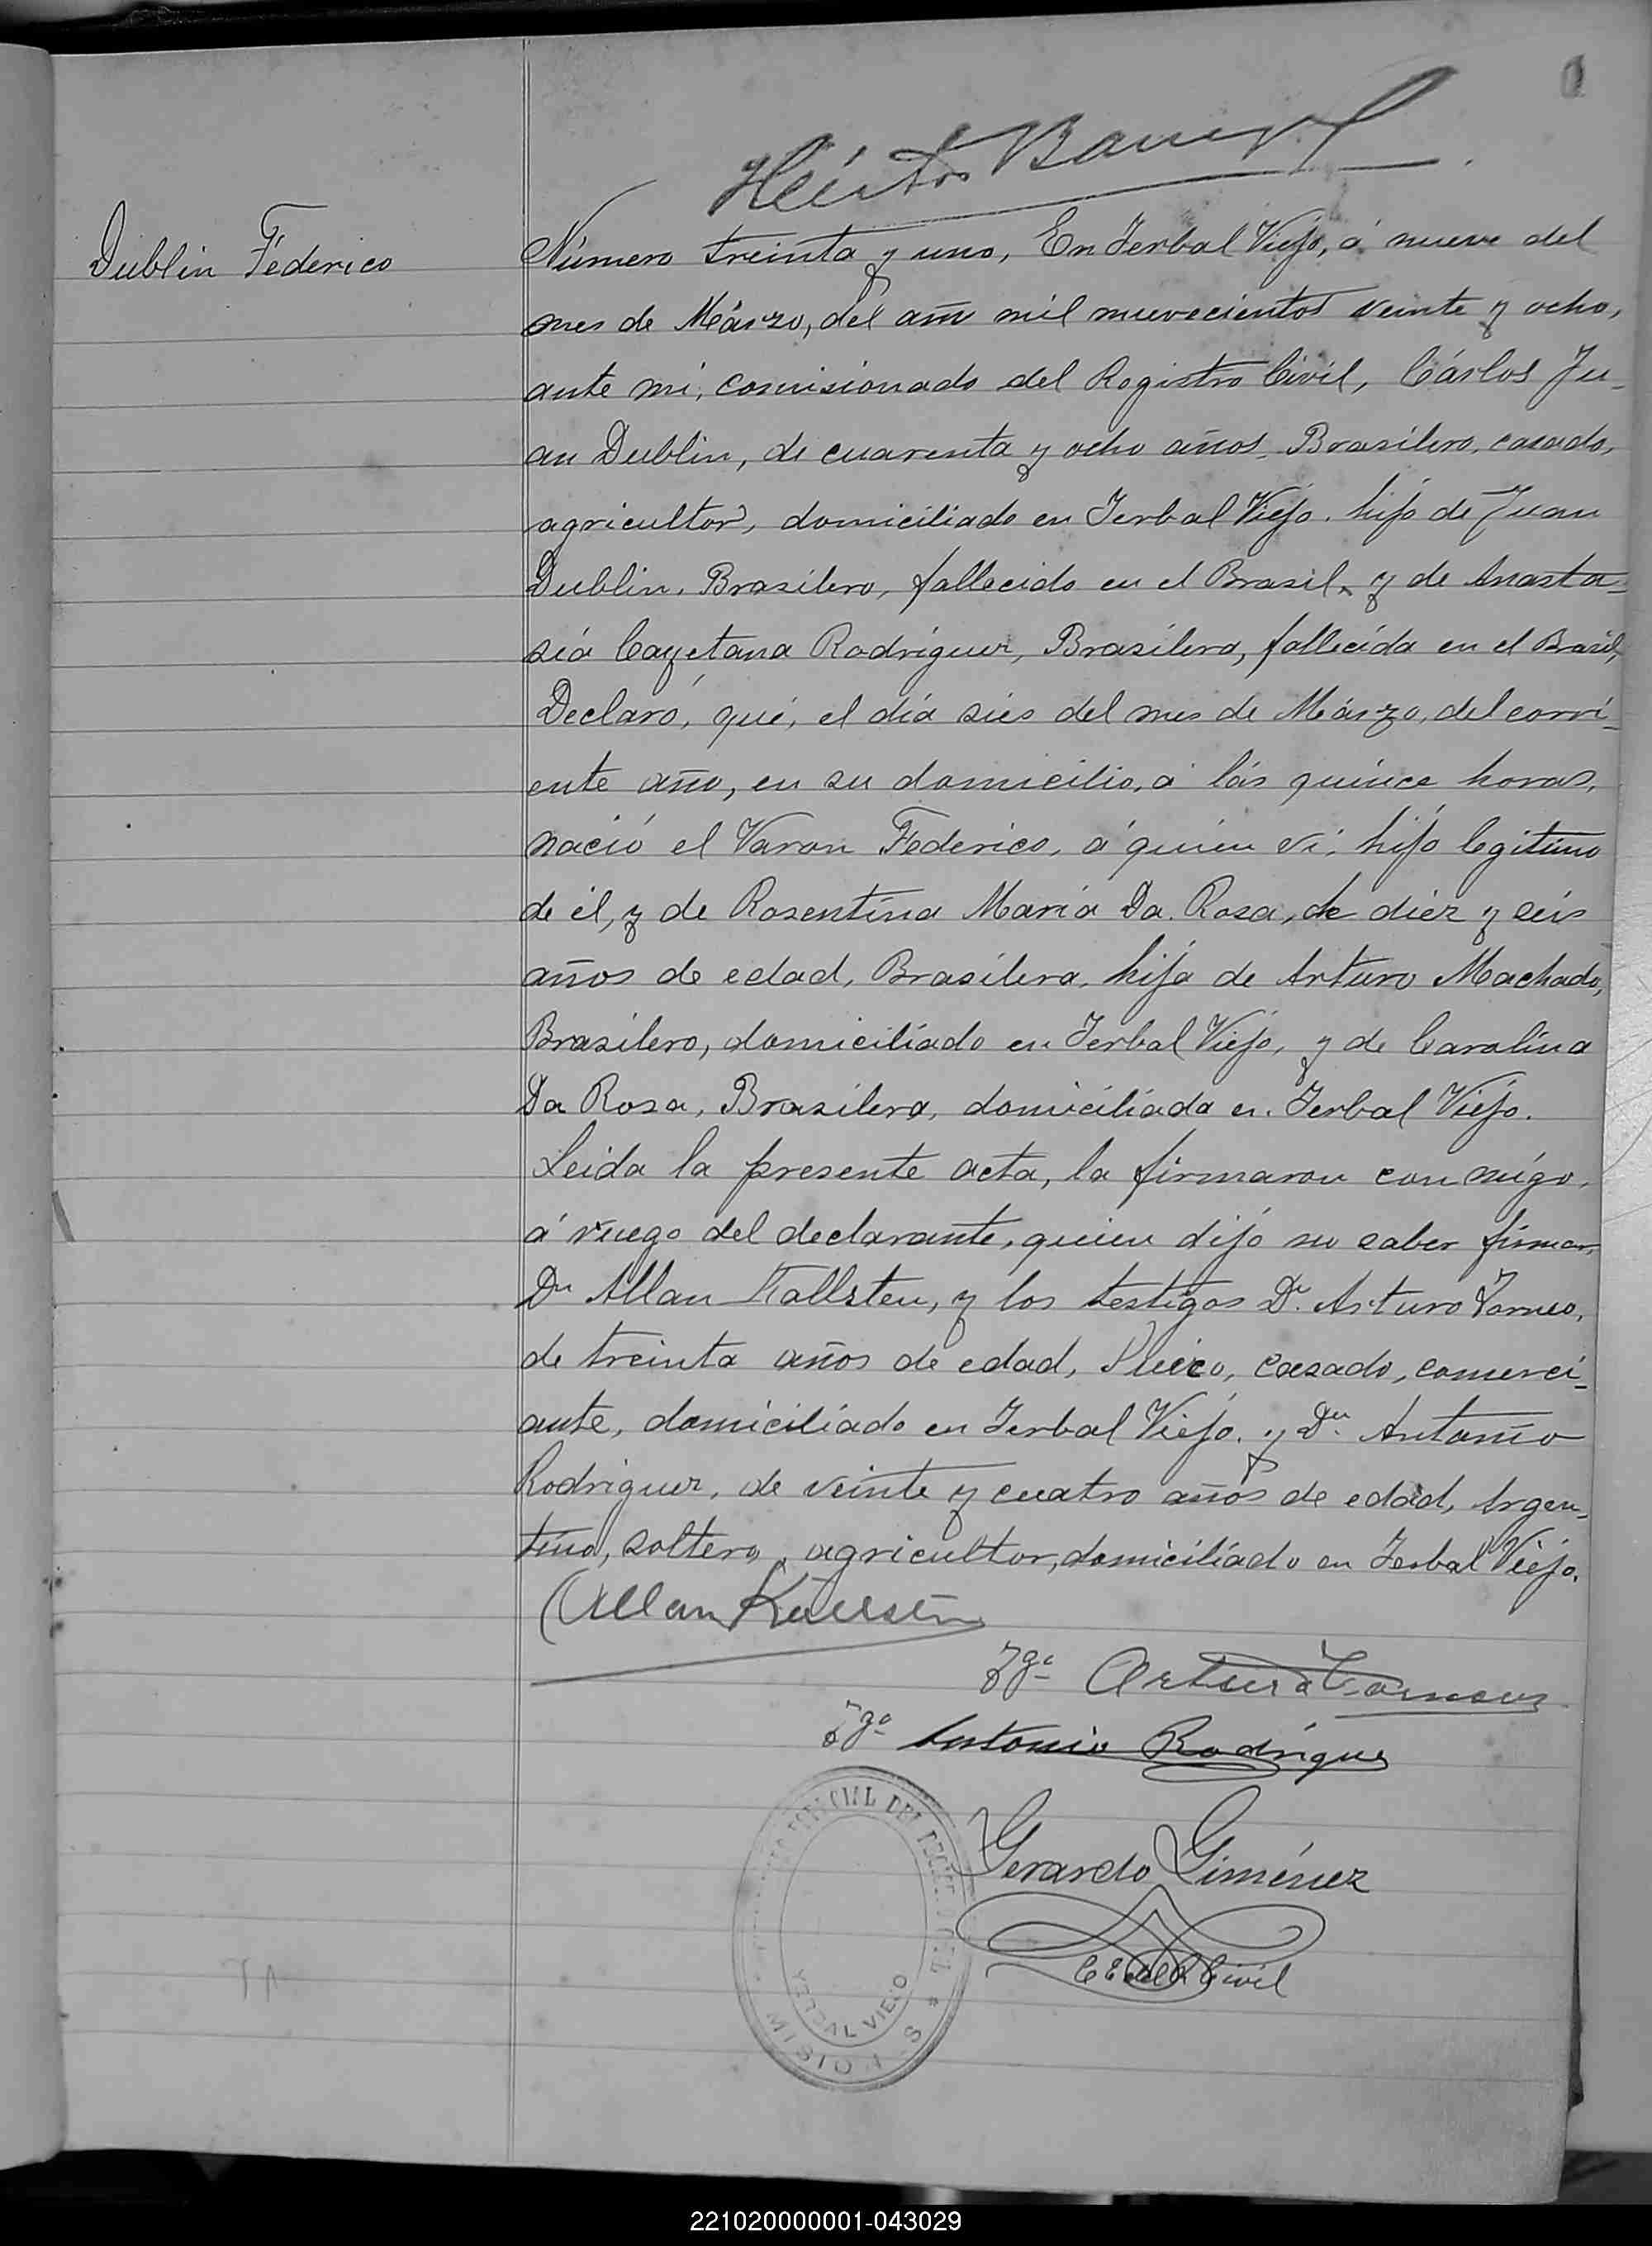 Héctor
Dublin Féderico
Número treinta y uno, En Ierbal Viejo, á nueve del
mes de Márzo, del año mil nuevecientos veinte y ocho,
ante mi, comisionado del Registro Civil, Cárlos Ju-
an Dublin, de cuarenta y ocho años, Brasilero, casado,
agricultor, domiciliado en Ierbal Viejo. hijo de Juan
Dublin, Brasilero, fallecido en el Brasil, y de Anasta-
sia Cayetana Rodriguez, Brasilera, fallecida en el Brasil,
Declaró, qué, el día sies del mes de Márzo, del corri-
ente año, en su domicilio, á lás quince horas,
nació el Varon Féderico, á quien ví, hijo legitimo
de él, y de Rosentina María Da Rosa, de diez y seis
años de edad, Brasilera, hija de Arturo Machado,
Brasilero, domiciliado en Ierbal Viejo, y de Carolina
Da Rosa, Brasilera, domiciliada en Ierbal Viejo.
Leida la presente acta, la firmaron con migo,
á ruego del declarante, quien dijó no saber firmar,
Dn Allan Kallsten, y los testigos Dn. Arturo
de treinta años de edad, Sueco, casado, comerci-
ante, domiciliado en Ierbal Viejo. y Dn. Antonio
Rodriguez, de veinte y cuatro años de edad, Argen-
tino, soltero, agricultor, domiciliado en Ierbal Viejo.
Allan Källsten
Tgo Arturo
Tgo Antonio Rodrigues
Gerardo Giménez
C E del R Civil
ESPECIAL DEL
YERBAL VIEJO
MISIONES
221020000001-043029